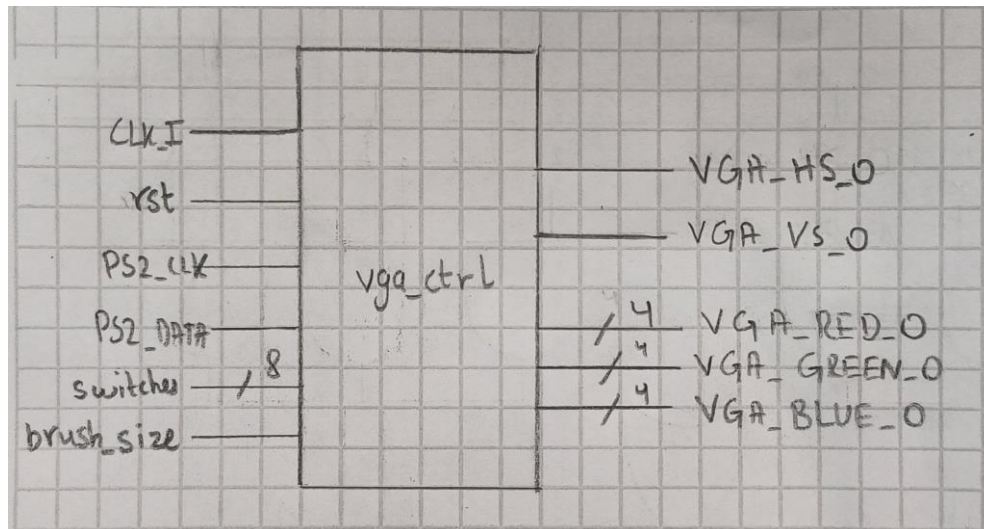 CLK_I
rst
PS2_CLK
PS2_DATA
switches
8
brush_size
vga_ctrl
VGA_HS_O
VGA_VS_O
4
VGA_RED_O
4
VGA_GREEN_O
4
VGA_BLUE_O